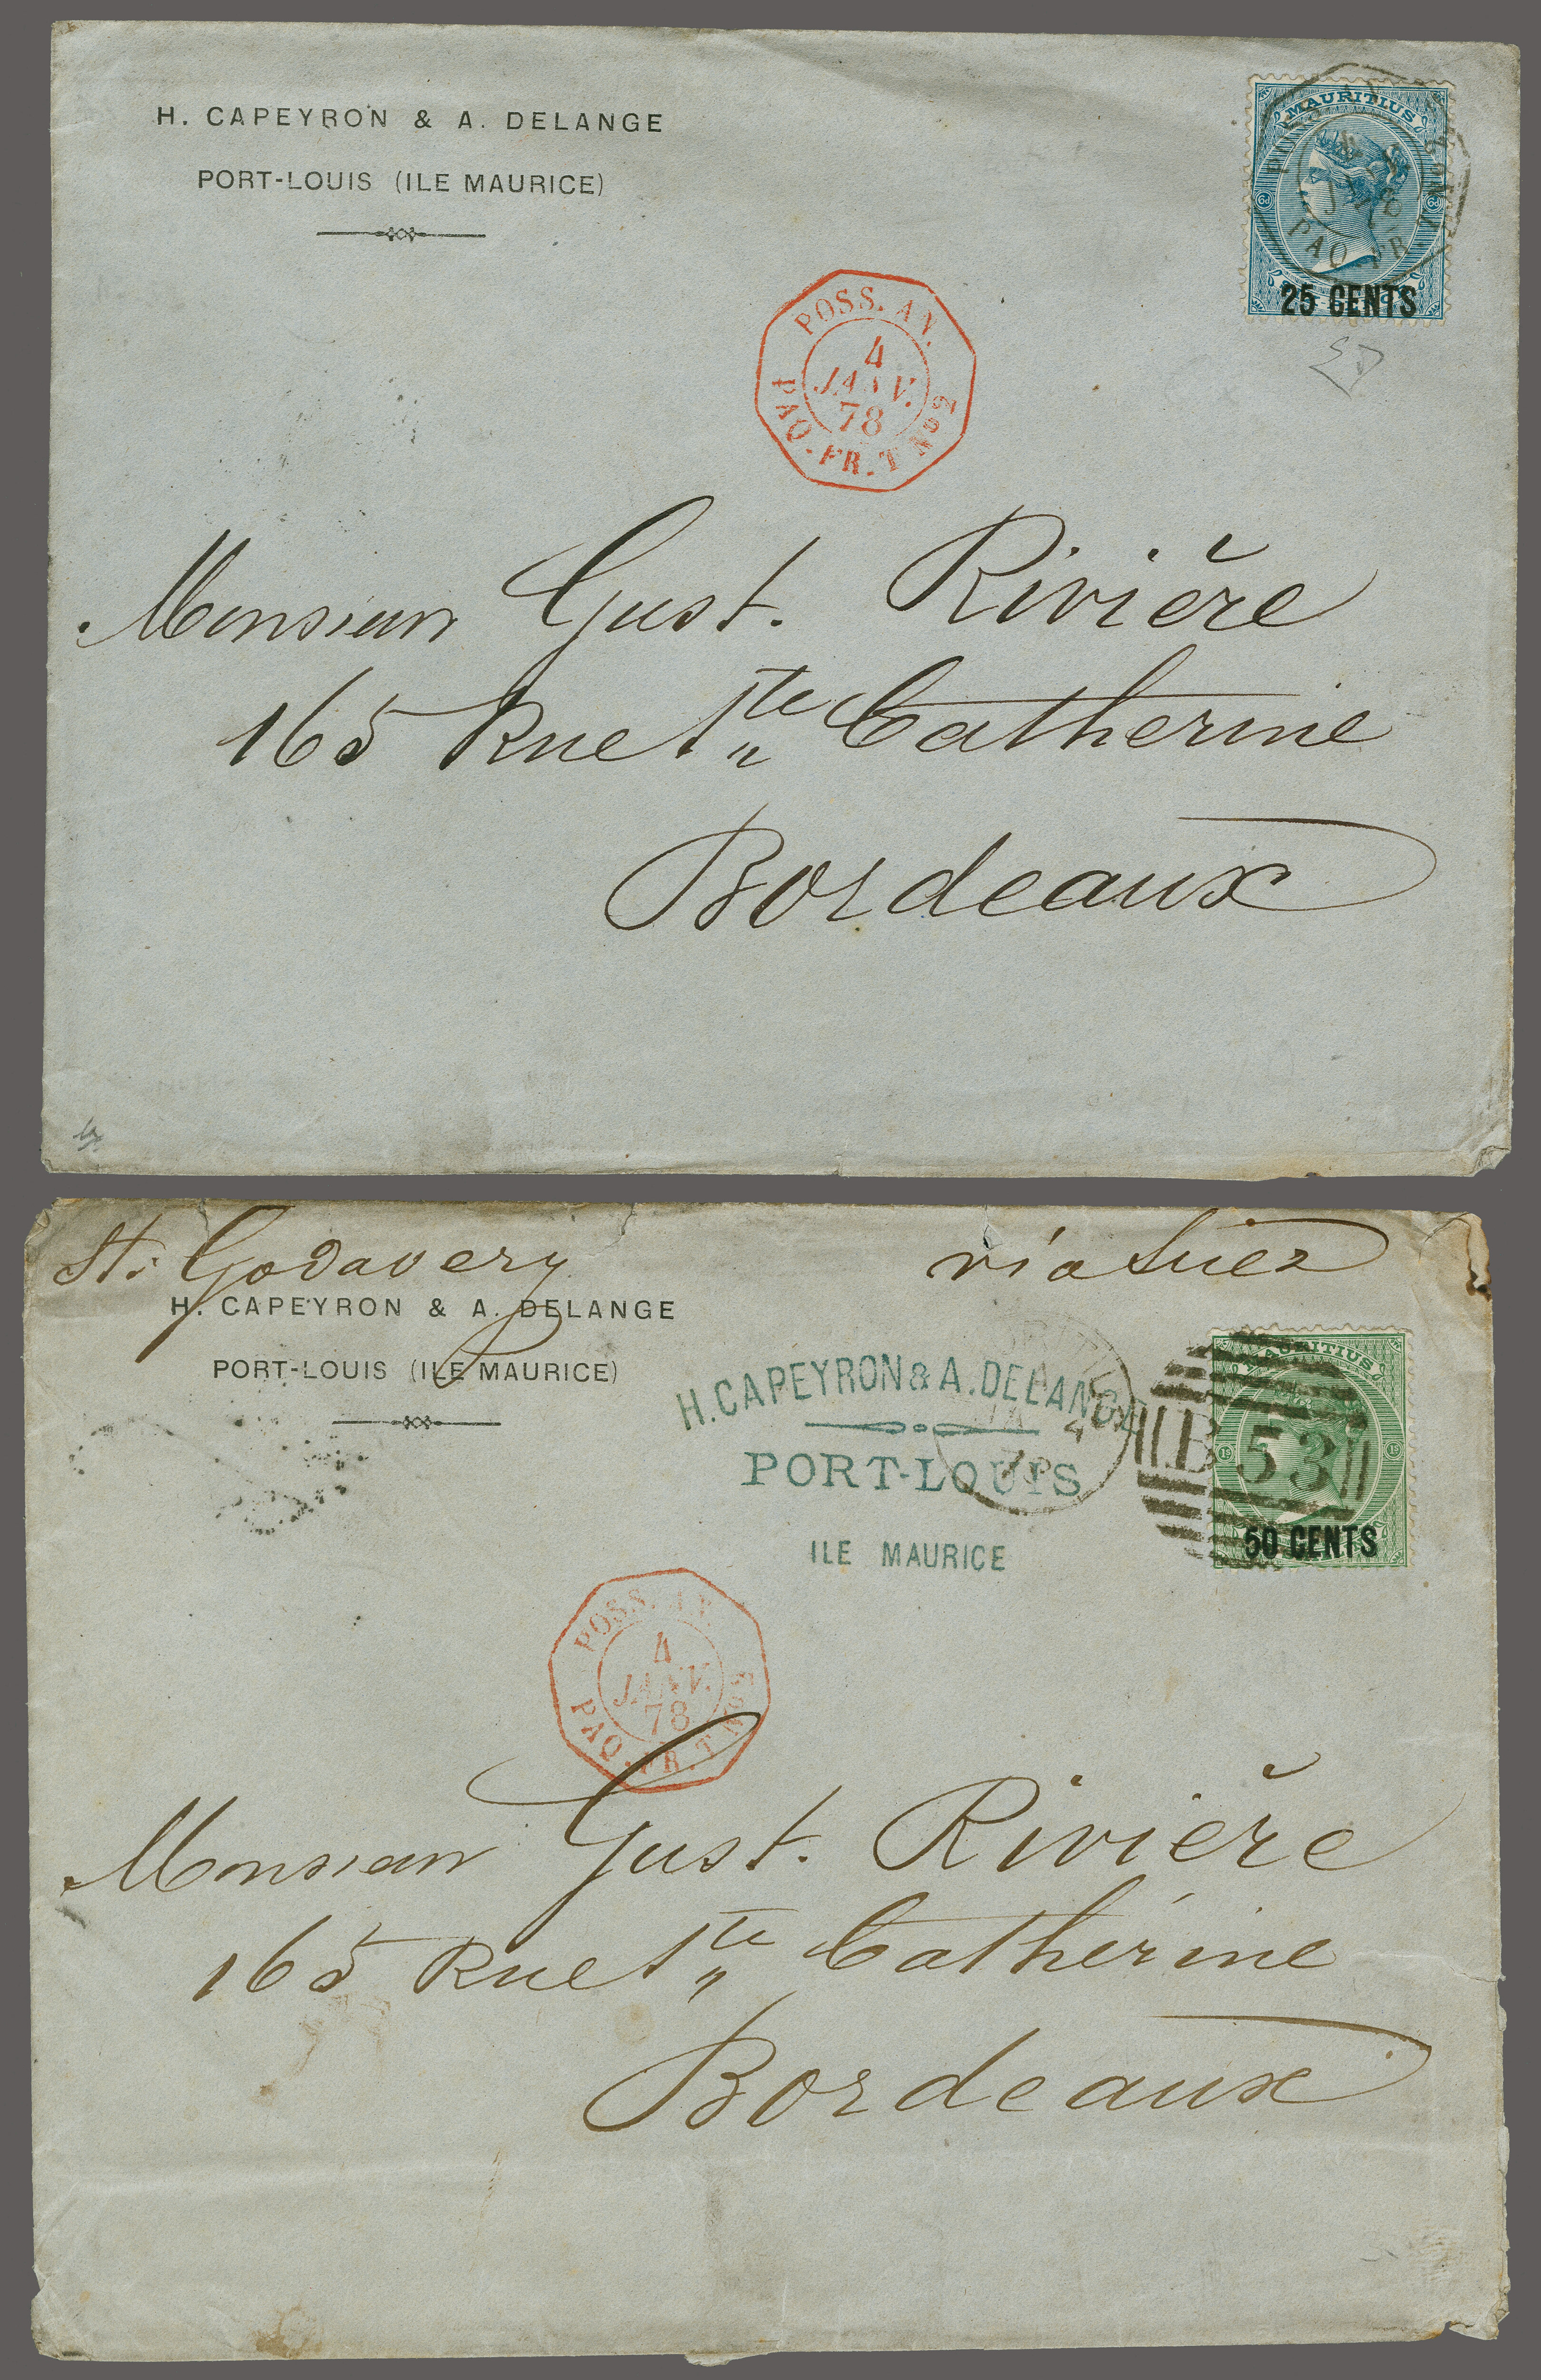 H. CAPEYRON & A. DELANGE
PORT-LOUIS (ILE MAURICE)
MAURITIUS
6d 6d
PAQ FR
25 CENTS
POSS. AN.
4
JANV.
78
PAQ. FR. T No 2
Monsieur Gust. Rivière
165 Rue Ste Catherine
Bordeaux
St: Godavery
via Suez
H. CAPEYRON & A. DELANGE
PORT-LOUIS (ILE MAURICE)
H. CAPEYRON & A. DELANGE
PORT-LOUIS
ILE MAURICE
MAURITIUS
B 53
50 CENTS
POSS. AN.
4
JANV.
78
PAQ. FR. T No 2
Monsieur Gust. Rivière
165 Rue Ste Catherine
Bordeaux